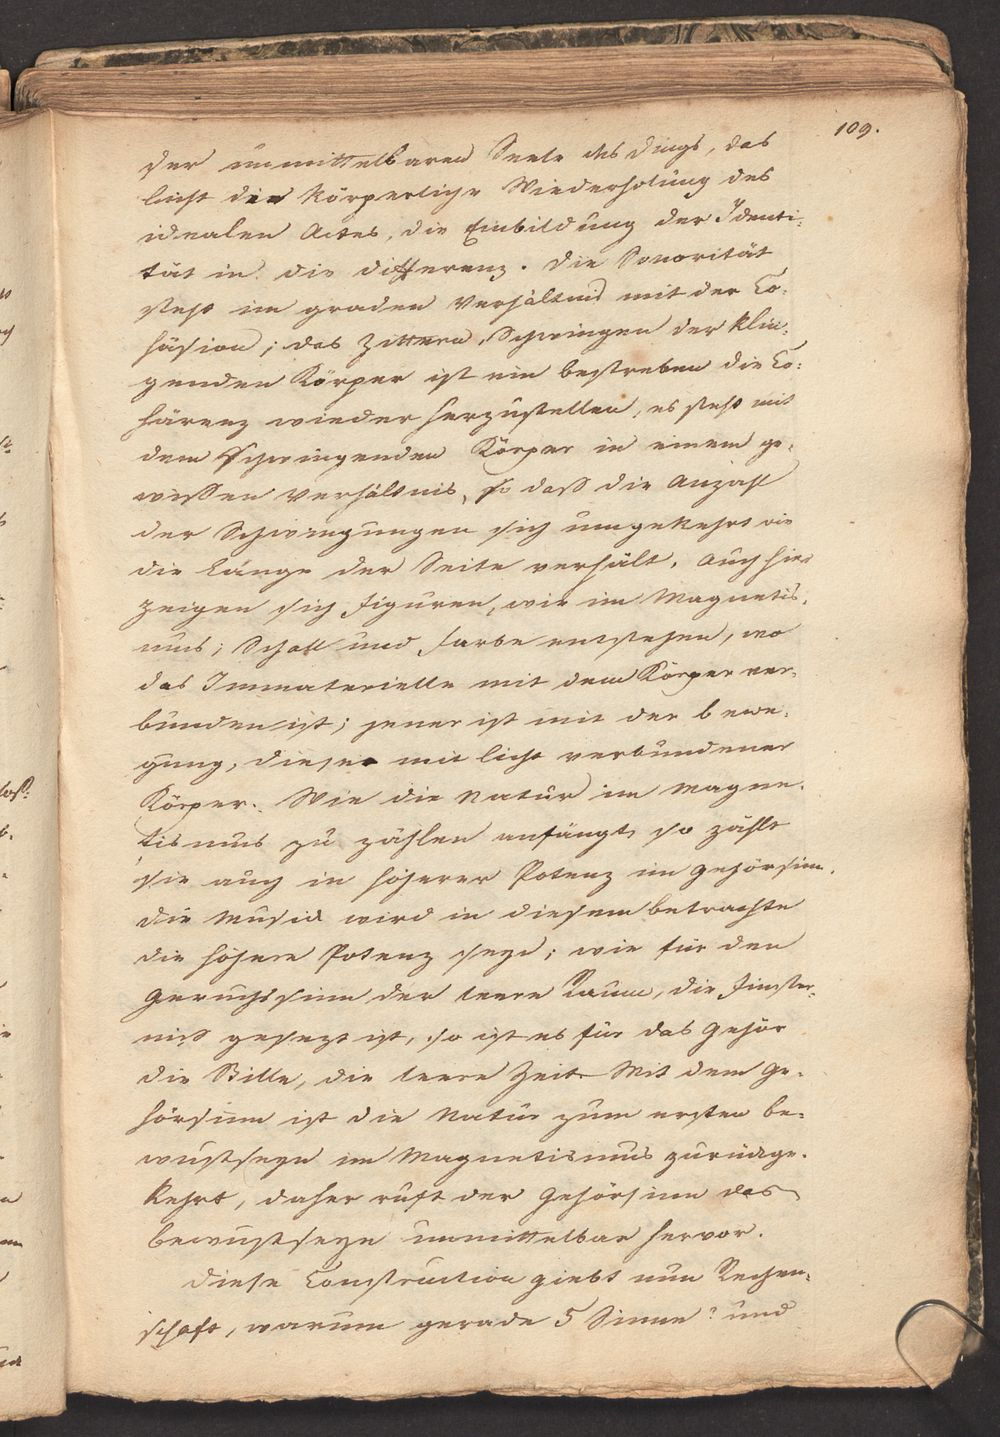 109.
der unmittelbaren Seele des Dings, das
licht die Körperliche Wiederholung des
idealen Actes, die Einbildung der Identi-
tät in die differenz. die Sonorität
steht im graden Verhältnis mit der Co-
häsion; das Zittern, Schwingen der klin-
genden Körper ist ein bestreben die Co-
härenz wieder herzustellen, es steht mit
dem schwingenden Körper in einem ge-
wissen Verhältnis, so daß die Anzahl
der Schwingungen sich umgekehrt wie
die Länge der Seite verhält. Auch hier
zeigen sich Figuren, wie im Magnetis-
mus; Schall und Farbe entstehen, wo
das Immaterielle mit dem Körper ver-
bunden ist; jener ist mit der bewe-
gung, dieser mit licht verbundener
Körper. Wie die Natur im Magne-
tismus zu zählen anfängt, so zählt
sie auch in höherer Potenz im Gehörsinn.
die Musick wird in diesem betrachte
die höhere Potenz seyn; wie für den
Geruchssinn der leere Raum, die Finster-
niß gesezt ist, so ist es für das Gehör
die Stille, die leere Zeit. Mit dem Ge-
hörsinn ist die Natur zum ersten be-
wustseyn im Magnetismus zurückge-
kehrt, daher ruft der Gehörsinn das
bewustseyn unmittelbar hervor.
diese Construction giebt nun Rechen-
schaft, warum gerade 5 Sinne? und